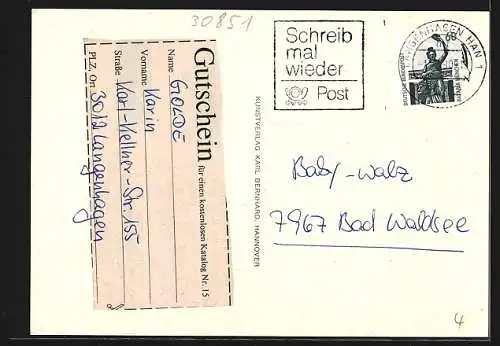 30851
Gutschein
für einen kostenlosen Katalog Nr. 15
Name GOLDE
Vorname Karin
Straße Karl-Kellner-Str. 155
PLZ, Ort 3012 Langenhagen
KUNSTVERLAG KARL BERNHARD, HANNOVER
Schreib
mal
wieder
Post
LANGENHAGEN, HAN 1
60
Baby-Walz
7967 Bad Waldsee
4